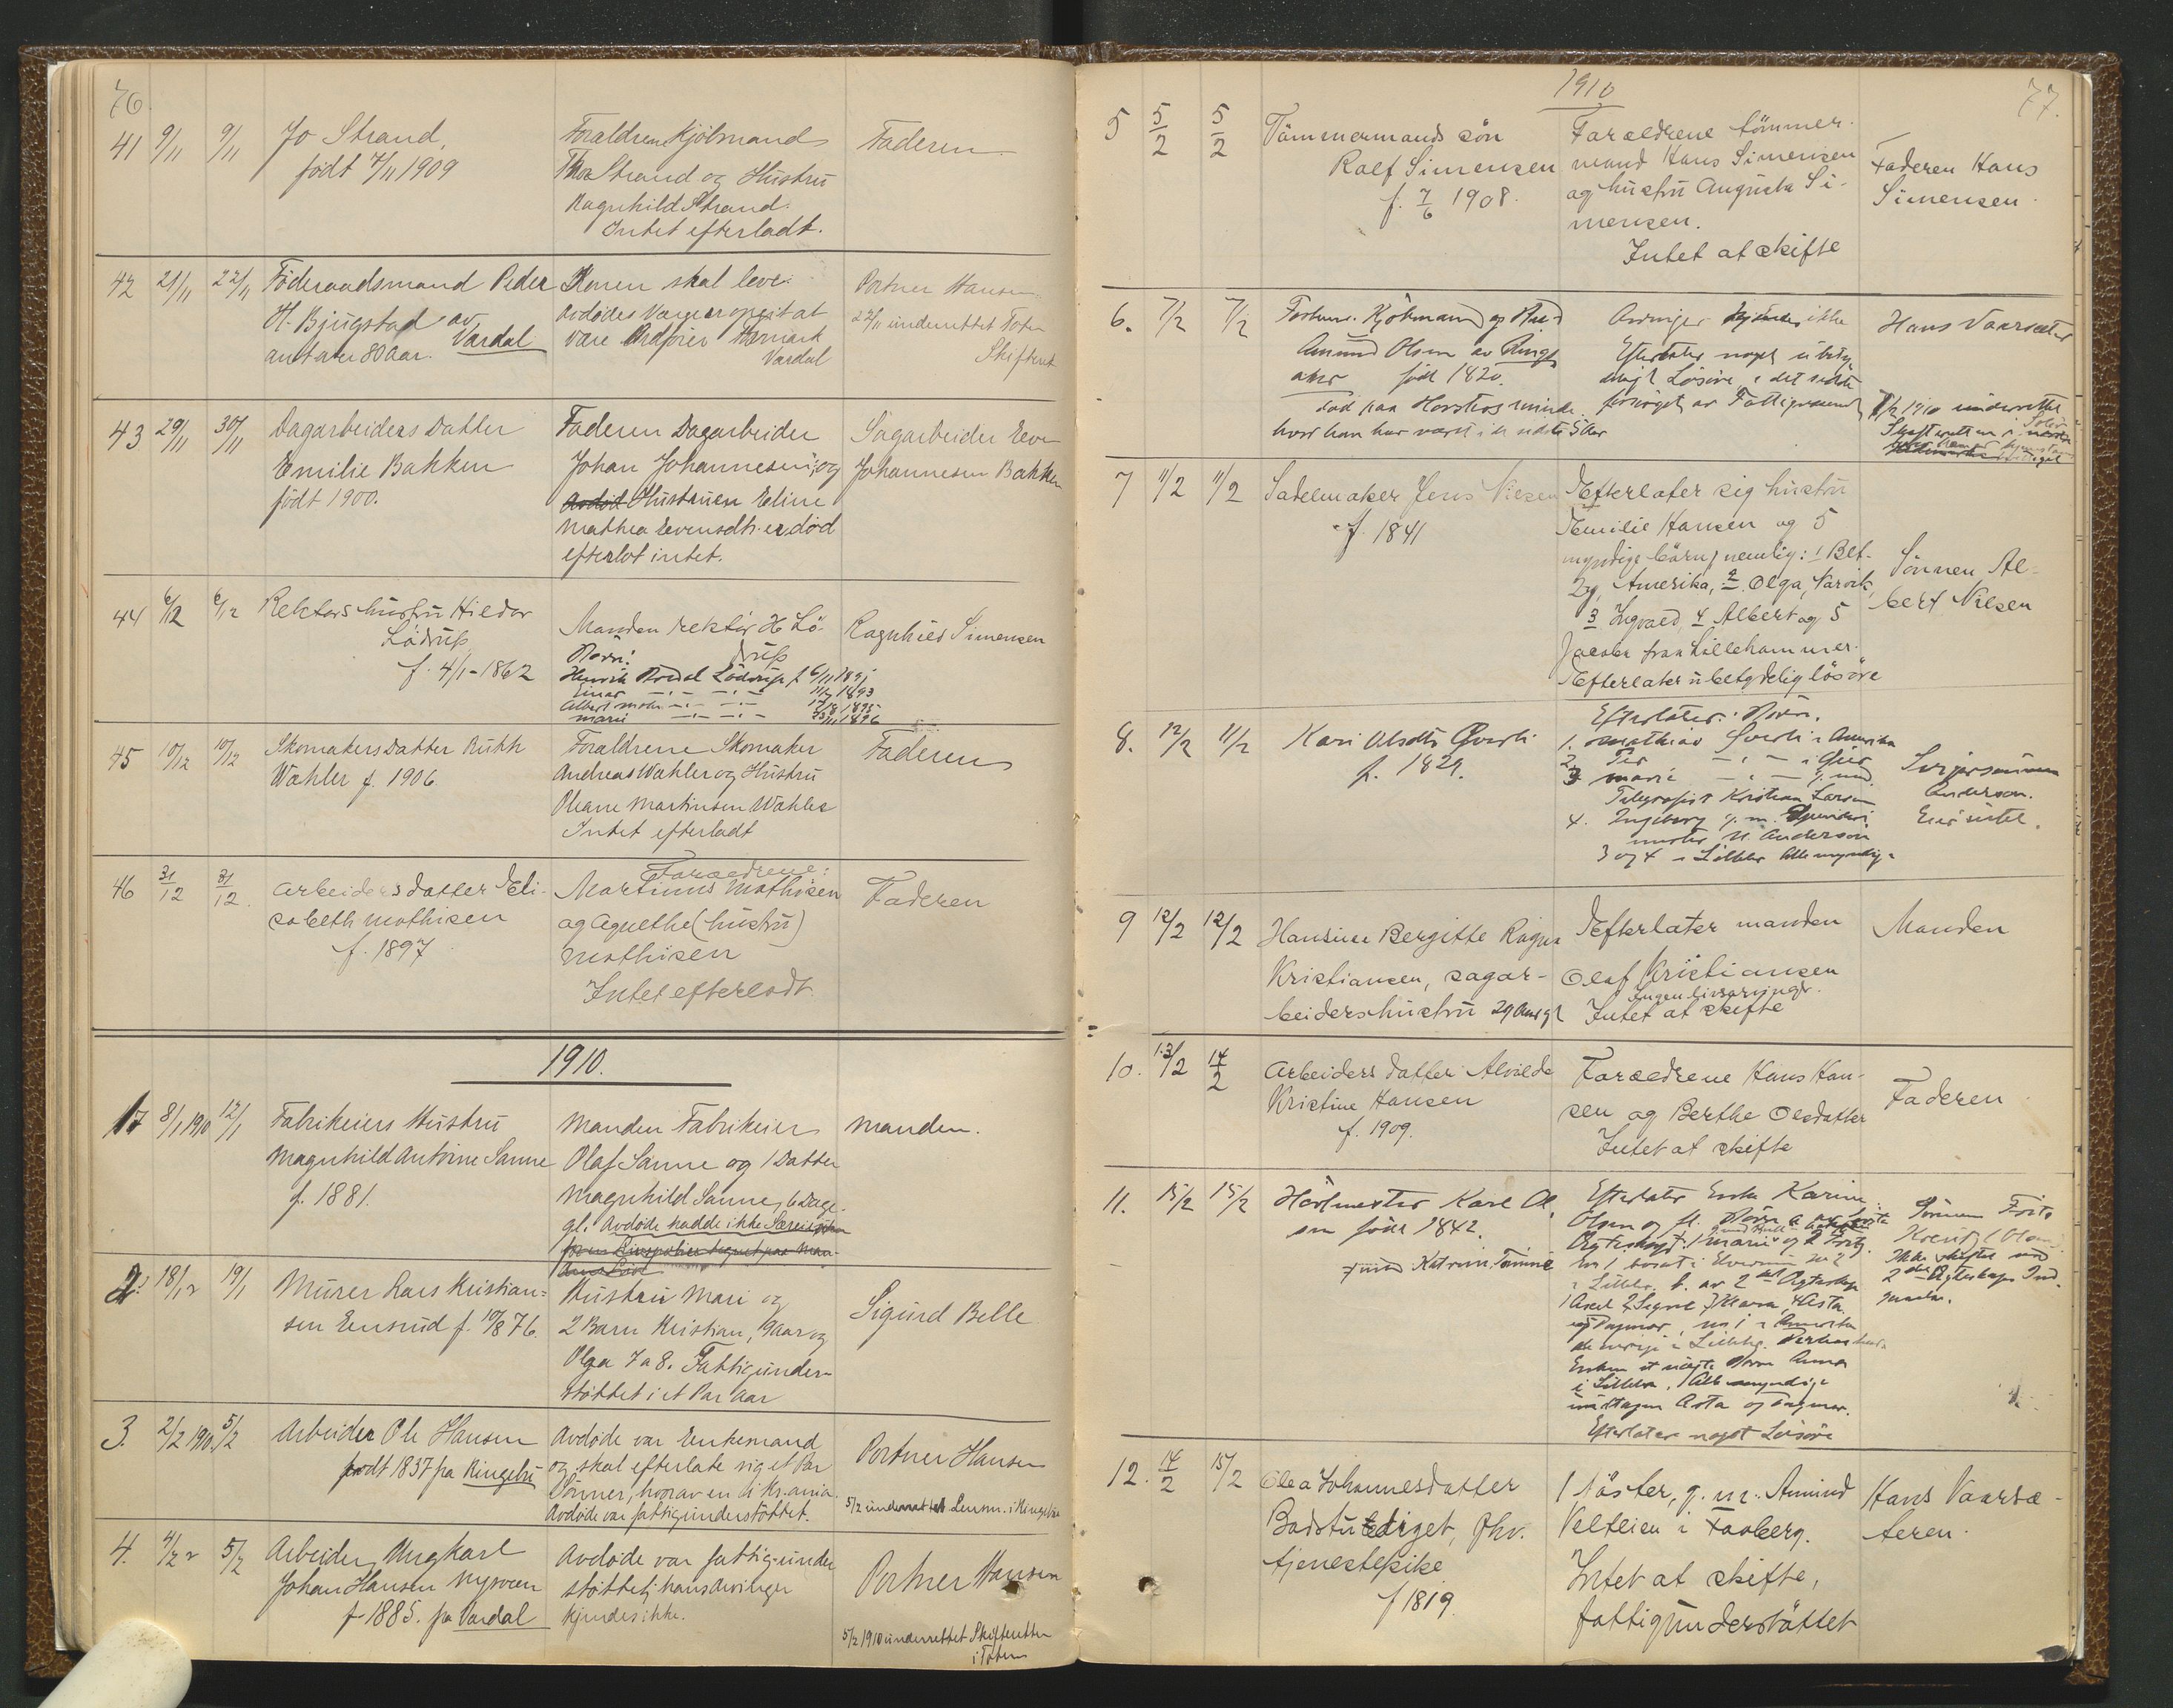 76.
41 9/11 9/11 Jo Strand,
født 7/11 1909
Forældren Kjøbmand
Thor Strand og Hustru
Ragnhild Strand.
Intet efterladt.
Faderen
42 21/11 22/11 Föderaadsmand Peder
H. Bjugstad av
antater 80 Aar. Vardal
Konen skal leve.
Avdødes Værge opgit at
være Ordfører
Vardal
Portner Hansen
22/11 underrettet Toten
Skifteret
43 29/11 30/11 Dagarbeiders Datter
Emilie Bakken
født 1900.
Faderen Dagarbeider
Johan Johannesen, og
Hustruen Eline
Mathea Evensdtr. er død
efterlot intet.
Sagarbeider Even
Johannesen Bakken
44 6/12 6/12 Rektors hustru Hildor
Lödrup
f. 4/1-1862
Manden rektor H Lö-
drup
Børn:
Henrik Lödrup f. 6/11 1891
Einar 1893
Albert 1895
Marie 1896
Ragnhild Simensen
45 10/12 10/12 Skomakers Datter Ruth
Wahler f. 1906
Forældrene Skomaker
Andreas Wahler og Hustru
Oleane Martinsen Wahler
Intet efterladt
Faderen
46 31/12 31/12 Arbeiders datter Eli-
sabeth Mathisen
f. 1897
Forældrene:
Martinus Mathisen
og Agnethe (hustru)
Mathisen
Intet efterladt
Faderen
1910.
1 8/1 1910 12/1 Fabrikeiers Hustru
Magnhild Antoine Sanne
f. 1881.
Manden Fabrikeier
Olaf Sanne og 1 Datter
Magnhild Sanne, 6 Dage
gl. Avdøde hadde ikke Særeie
Manden.
2. 18/1 19/1 Murer Lars Kristian-
sen Ensrud f. 10/8 76.
Hustru Mari og
2 Barn Kristian, 9 aar og
Olga 7 a 8. Fattigunder-
støttet i et Par Aar
Sigurd Belle
3. 2/2 1910. 5/2 Arbeider Ole Hansen
født 1837 fra Ringebu
Avdøde var Enkemand
og skal efterlate sig et Par
Sønner, hvorav en i Kr.ania.
Avdøde var fattigunderstøttet.
Portner Hansen
5/2 underrettet Lensm. i Ringebu
4. 4/2 5/2 Arbeider Ungkarl
Johan Hansen Nysveen
f. 1885. fra Vardal
Avdøde var fattigunder
støttet, hans Arvinger
kjendes ikke.
Portner Hansen
5/2 1910 underrettet Skifteretten
i Toten
1910
77.
5 5/2 5/2 Tömmermands sön
Ralf Simensen
f. 7/6 1908.
Forældrene tömmer-
mand Hans Simensen
og hustru Augusta Si-
mensen.
Intet at skifte
Faderen Hans
Simensen.
6. 7/2 7/2 Forhenv. Kjöbmand og
Amund Olsen av Rings
aker født 1820.
død paa Horsters minde.
hvor han har været i de sidste 5 Aar
Arvinger kjendes ikke
Efterlater noget ubety
deligt Lösöre, i det sidste
forsörget av Fattigvæsenet
Hans Vaarsæter
7/2 1910 underrettet
Skifteretten i
7 11/2 11/2 Sadelmaker Jens Nilsen
f. 1841
Efterlater sig hustru
Emilie Hansen og 5
myndige börn, nemlig: 1 Bet-
zy, Amerika, 2. Olga, Narvik,
3 Ingvald, 4 Albert og 5
Jacob fra Lillehammer.
Efterlater ubetydelig lösöre
Sönnen Al-
bert Nilsen
8. 12/2 11/2 Kari Olsdtr Överli
f. 1829.
Efterlater: Börn.
1. Mathias Överli i Amerika
2. Per i Gjer
3 Marie g. med
Telegrafist Kristian Larsen
4. Ingeborg g. m.
mester N. Anderson
3 og 4 i Lillehr Alle myndige
Svigersönnen
Anderson.
Eier intet.
9 12/2 12/2 Hansine Bergitte Ragna
Kristiansen, sagar-
beiders hustru 29 Aar gl
Efterlater manden
Olaf Kristiansen
Ingen livsarvinger.
Intet at skifte
Manden
10. 13/2 14/2 Arbeiders datter Alvilde
Kristine Hansen
f. 1909.
Forældrene Hans Han-
sen og Berthe Olsdatter
Intet at skifte
Faderen
11. 15/2 15/2 Karl Ol.
sen født 1842.
Efterlater Enke Karin
Olsen og fl. Börn
Ægteskap: 1 Marie og 2 Fritz
no 1 bosat i Elverum no 2
i Lillehr. b. av 2det Ægteskap
1 Axel 2 Signe 3 Klara, 4 Asta
og Dagmar, no 1 i Amerika
de övrige i Lillehr.
Enken et uægte Barn Anna
i Lillehr. Alle myndige
undtagen Asta og Dagmar.
Efterlater noget Lösöre
Sönnen Fritz
Olsen
Ikke skiftet med
2det Ægteskaps Ind-
gaaelse.
12. 14/2 15/2 Olea Johannesdatter
Badstuediget, fhv.
tjenestepike
f 1819.
1 söster, g. m. Amund
Veltlien i Faaberg.
Intet at skifte,
fattigunderstöttet
Hans Vaarsæ-
teren.